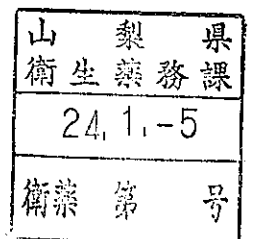 山梨県
衛生薬務課
24.1.-5
衛薬第号